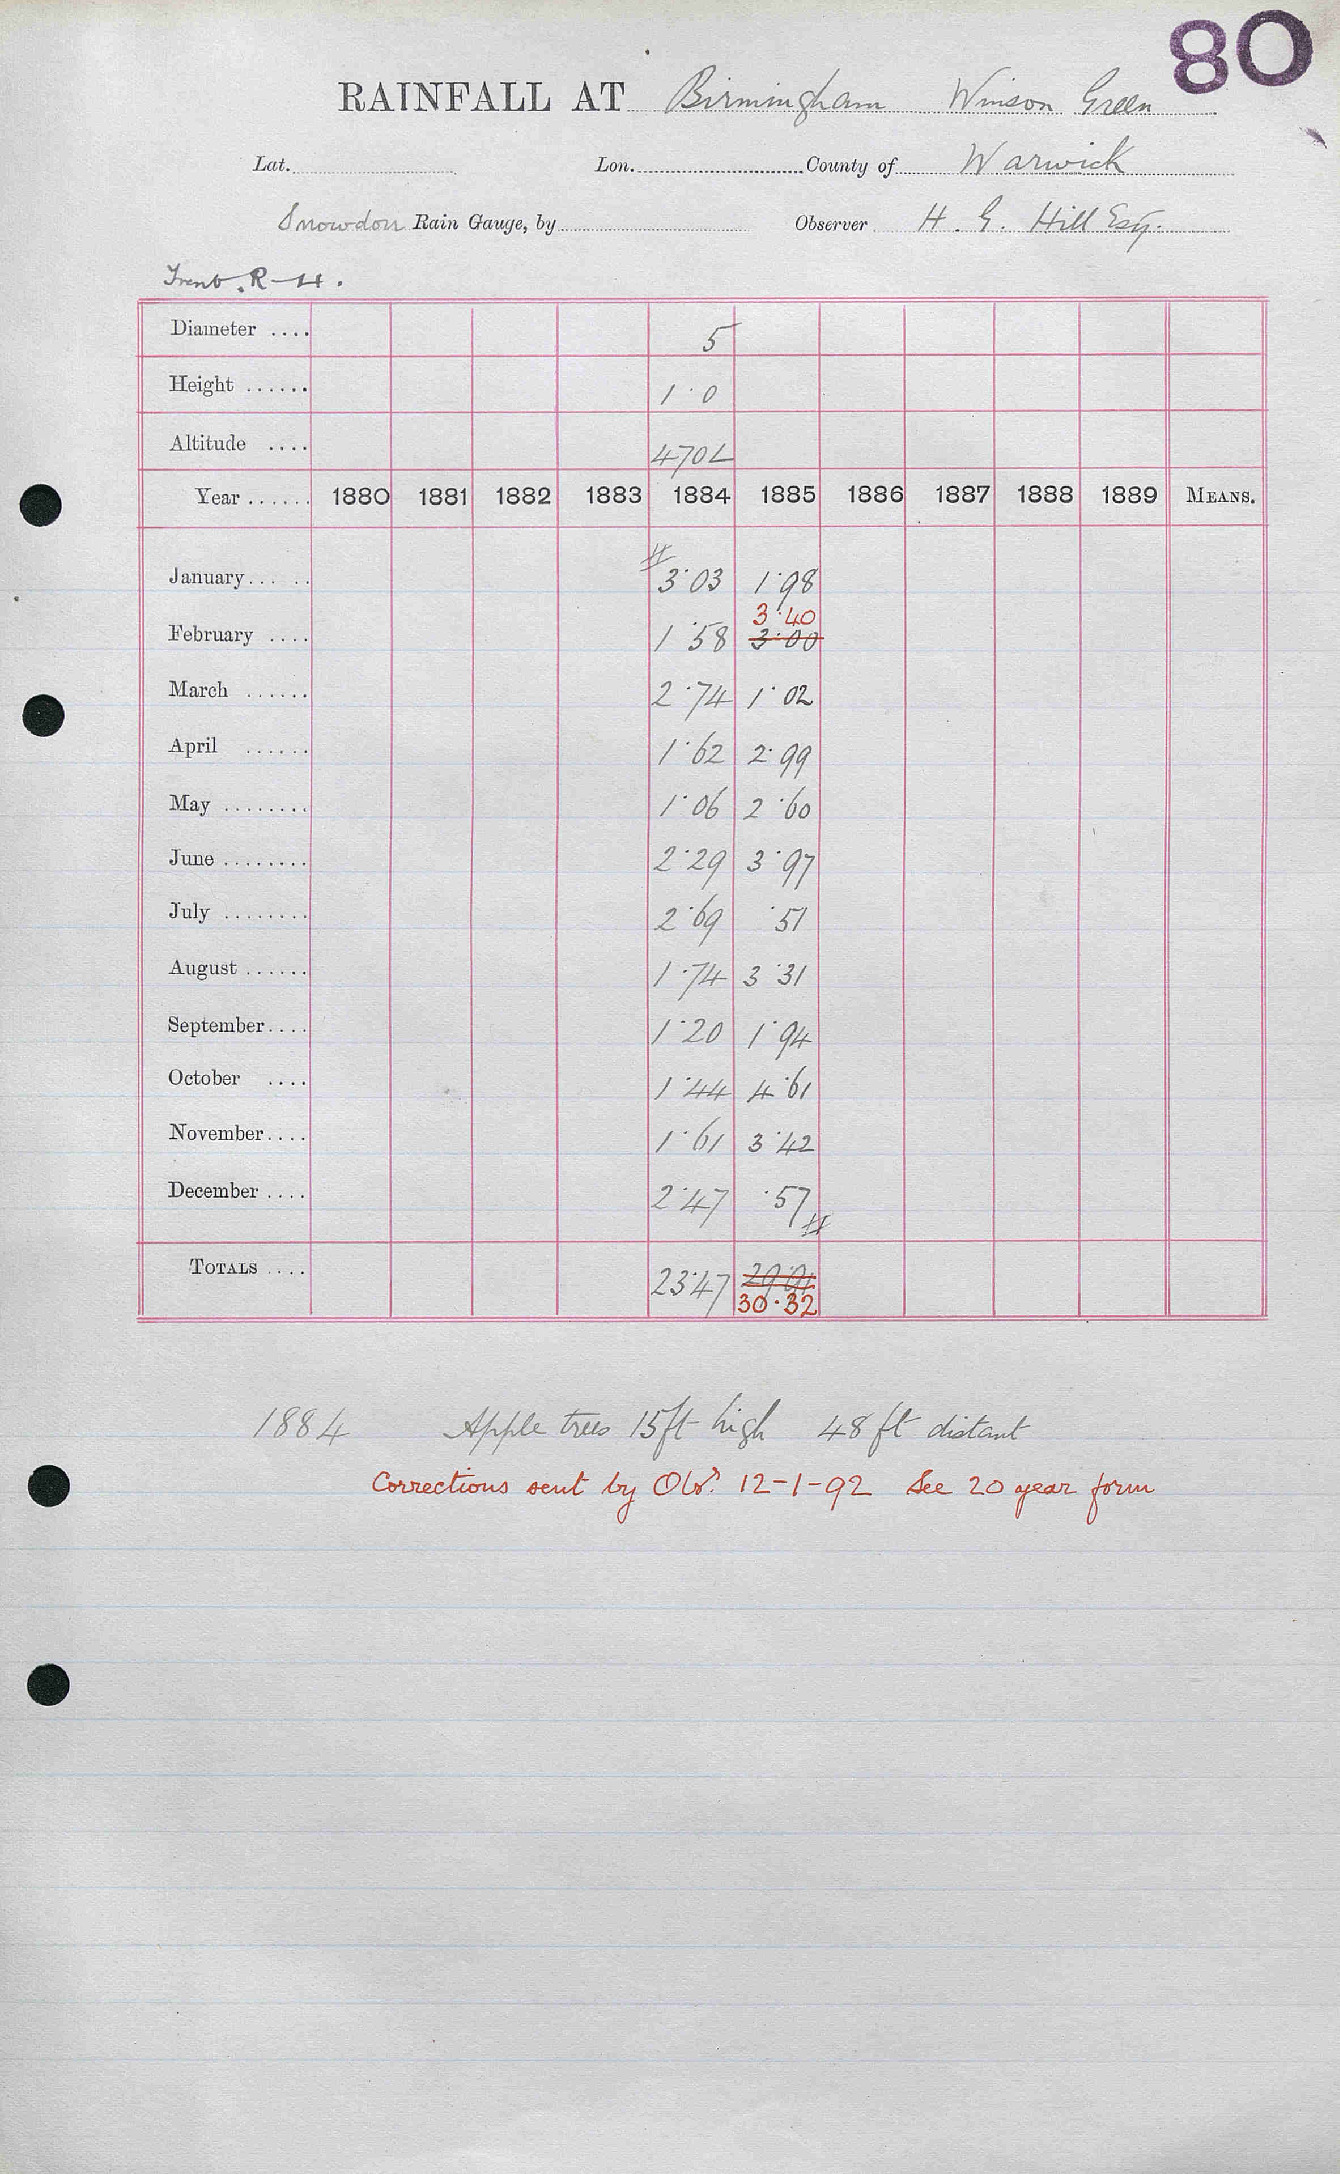 80
RAINFALL AT Birmingham Winson Green
Lat. Lon. County of Warwick
Snowdon Rain Gauge, by Observer H. G. Hill Esq.
Trent. R-H.
Diameter .... 5
Height ...... 1·0
Altitude .... 470L
Year ...... 1880 1881 1882 1883 1884 1885 1886 1887 1888 1889 MEANS.
January.... .. 3·03 1·98
3·40
February .... 1·58 3·00
March ...... 2·74 1·02
April ...... 1·62 2·99
May ........ 1·06 2·60
June ........ 2·29 3·97
July ........ 2·69 ·51
August ...... 1·74 3 31
September.... 1·20 1·94
October .... 1·44 4·61
November.... 1·61 3·42
December .... 2·47 ·57
TOTALS .... 23·47 29·91
30·32
1884 Apple trees 15ft high 48ft distant
Corrections sent by Obsr. 12-1-92 See 20 year form